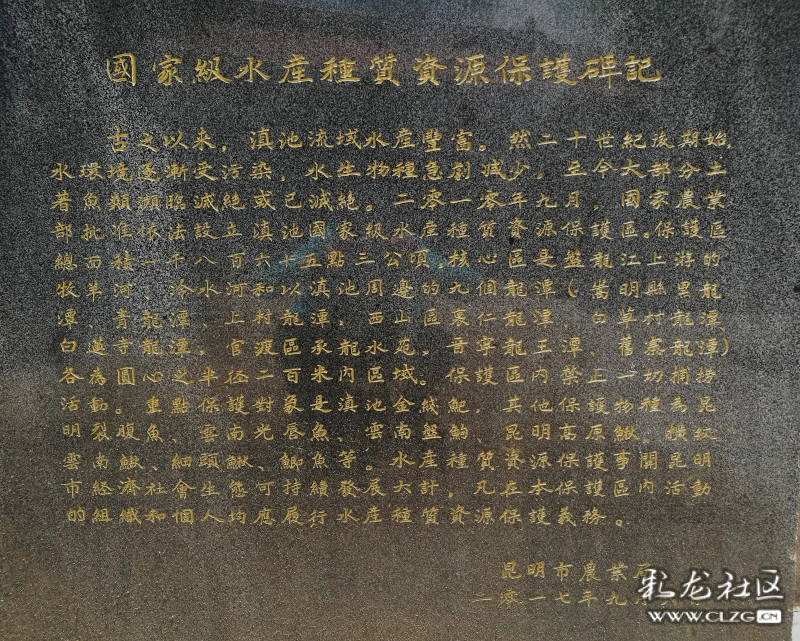 國家級水産種質資源保護碑記
古之以来，滇池流域水産豐富。然二十世紀後期始，
水環境逐漸受污染，水生物種急劇减少。至今大部分土
著魚類瀕臨滅絶或已滅絶。二零一零年九月，國家農業
部批准依法設立滇池國家級水産種質資源保護區。保護區
總面積一千八百六十五點三公頃，核心區是盤龍江上游的
牧羊河、冷水河和以滇池周邊的九個龍潭（嵩明縣黑龍
潭、青龍潭、上村龍潭，西山區裏仁龍潭、白草村龍潭、
白邊寺龍潭，官渡區承龍水苑，晋寧龍王潭、舊寨龍潭）
各為圓心之半徑二百米内區域。保護區内禁止一切捕撈
活動。重點保護對象是滇池金綫鲃，其他保護物種為昆
明裂腹魚、雲南光唇魚、雲南盤鮈、昆明高原鰍、橫紋
雲南鰍、細頭鰍、鯽魚等。水産種質資源保護事關昆明
市經濟社會生態可持續發展大計，凡在本保護區内活動
的組織和個人均應履行水産種質資源保護義務。
昆明市農業局
二零一七年九月
彩龙社区
WWW.CLZG.CN